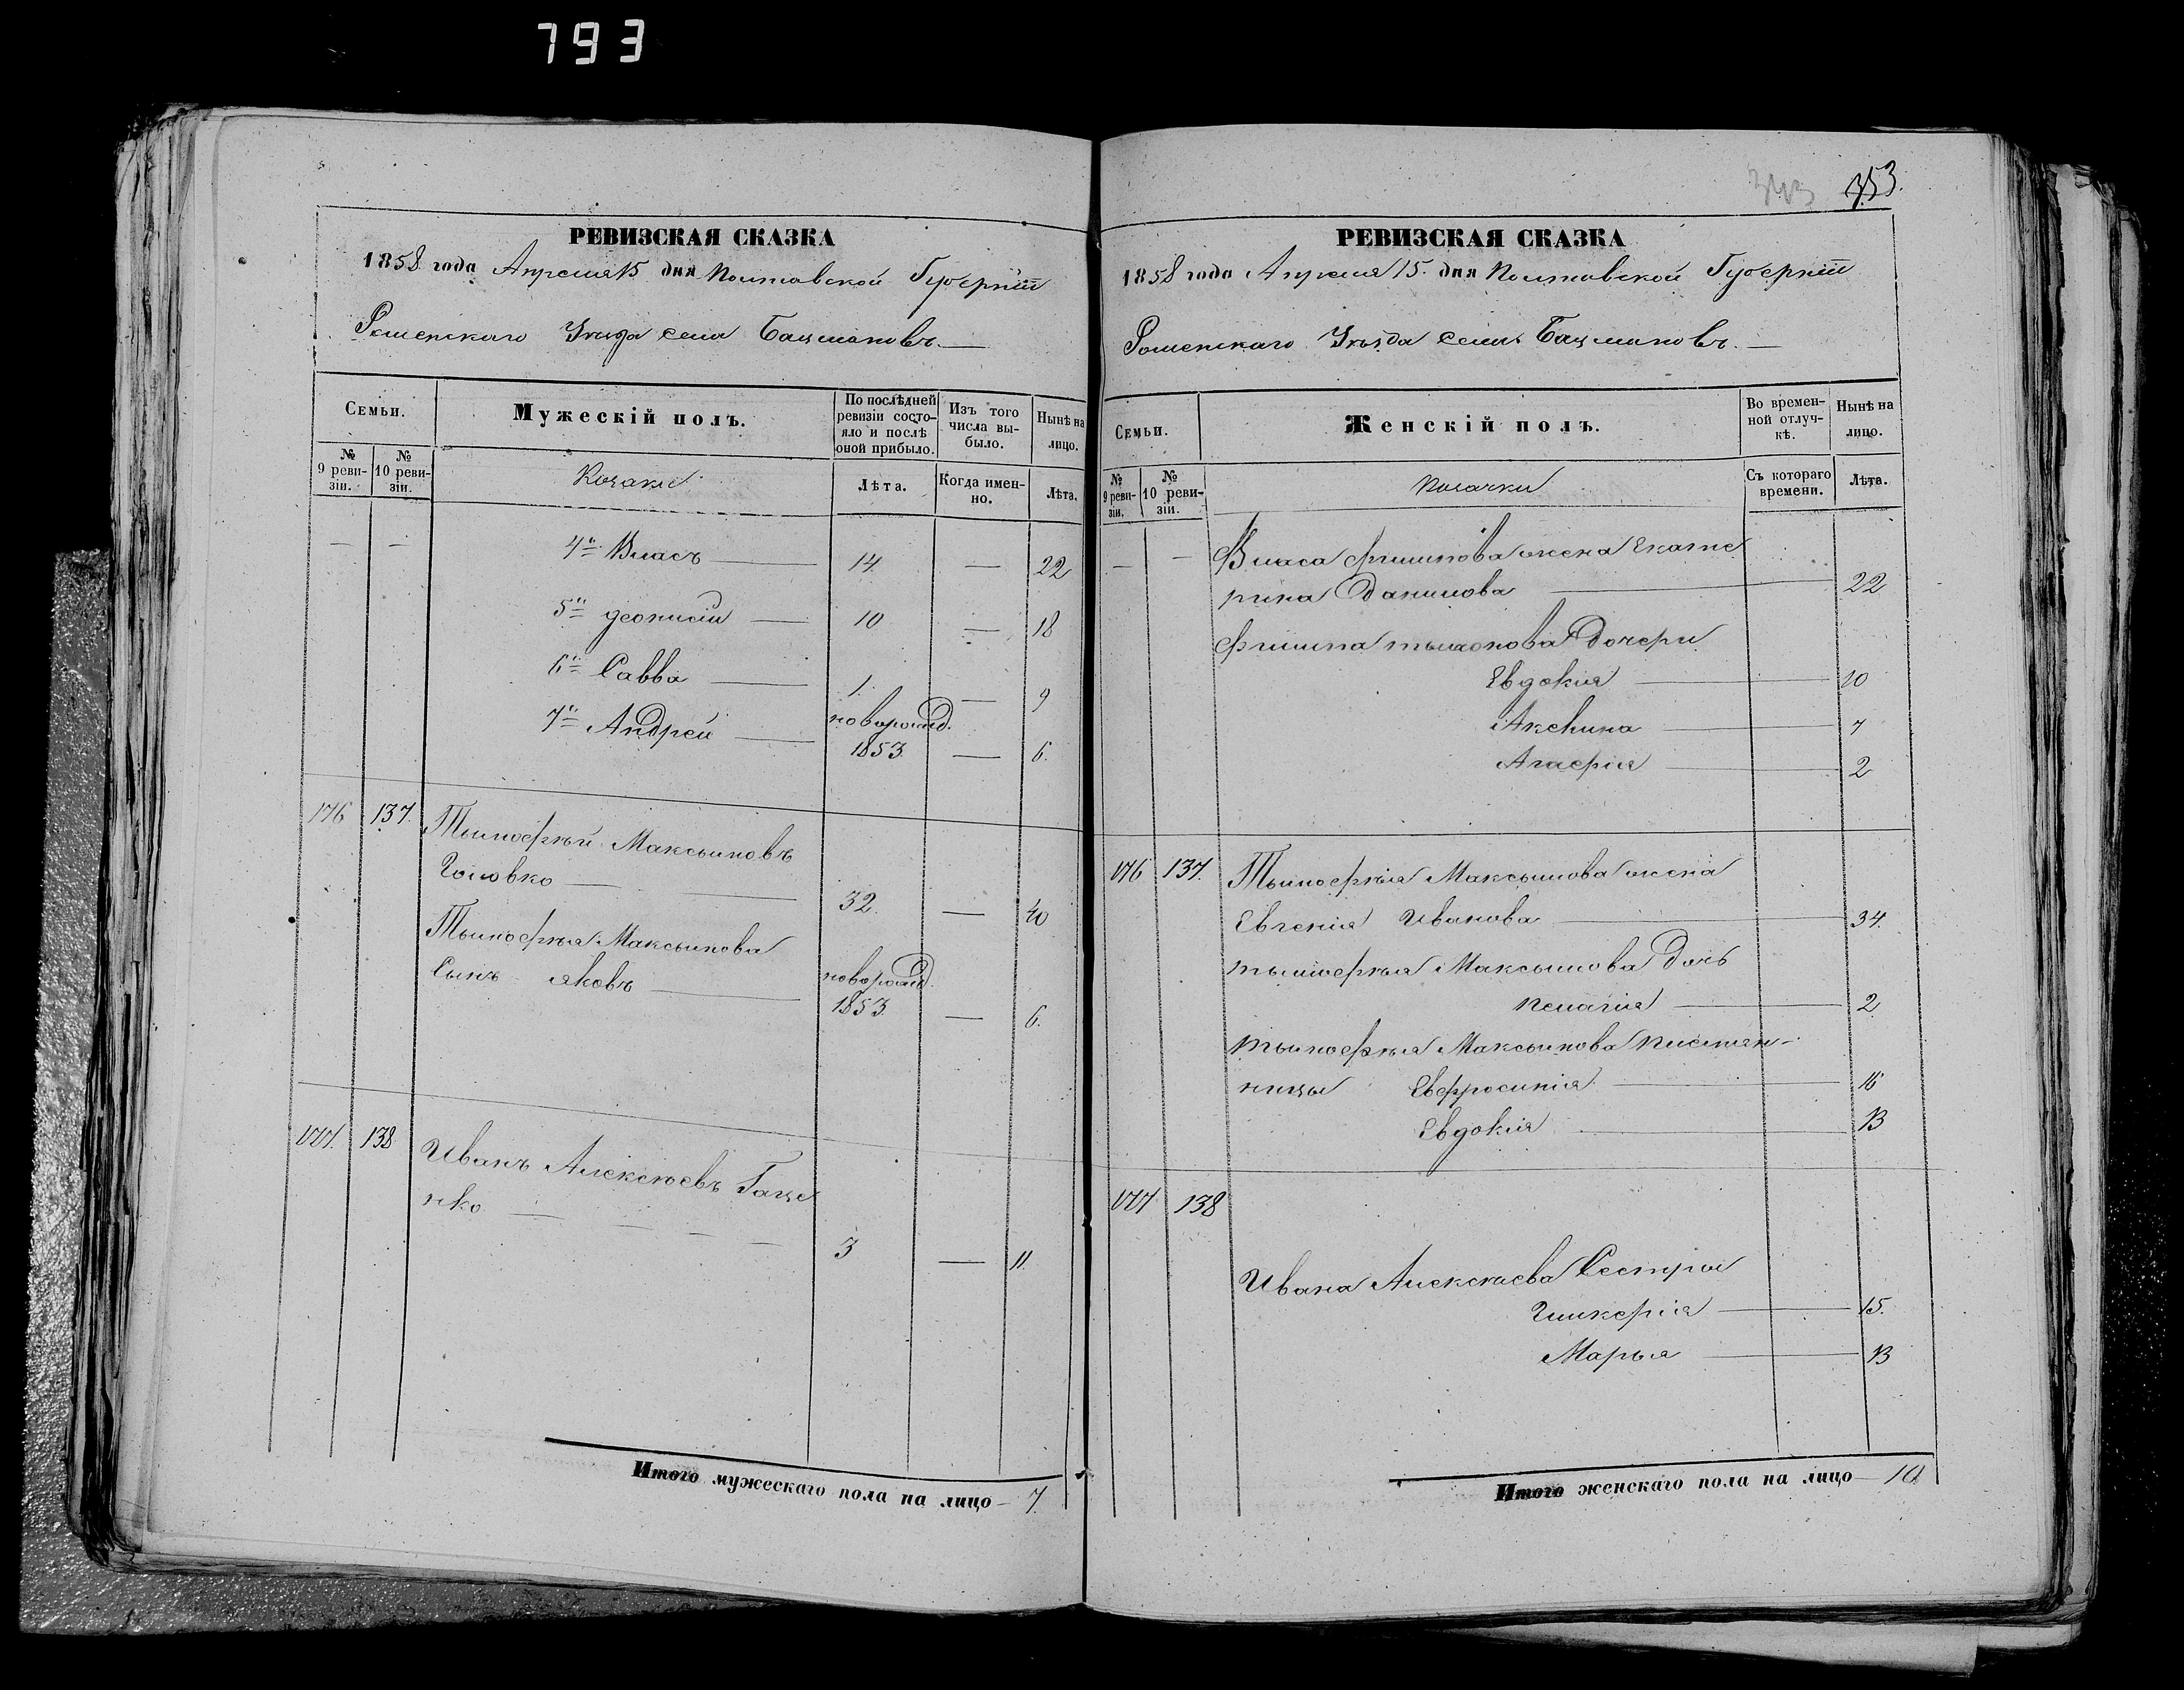 793
343 353.
РЕВИЗСКАЯ СКАЗКА
1858 года Апреля 15 дня Полтавской Губерніи
Роменскаго Уѣзда села Бацмановъ.
Семьи.
№ 9 ревизіи.
№ 10 ревизіи.
Мужескій полъ.
По послѣдней ревизіи состояло и послѣ оной прибыло.
Изъ того числа выбыло.
Нынѣ на лицо.
Козаки
Лѣта.
Когда именно.
Лѣта.
— — 4й Власъ — 14 — 22
5й Деонисій — 10 — 18
6й Савва — 1. — 9
7й Андрей — новорожд.
1853. — 6.
176 137. Тымофѣй Максымовъ
Головко — 32. — 40
Тымофѣя Максымова
Сынъ Яковъ — новорожд.
1853. — 6.
177. 138 Иванъ Алексѣевъ Гаце
нко — 3 — 11.
Итого мужескаго пола на лицо — 7.
РЕВИЗСКАЯ СКАЗКА
1858 года Апреля 15. дня Полтавской Губерніи
Роменскаго Уѣзда села Бацмановъ. —
Семьи.
№ 9 ревизіи.
№ 10 ревизіи.
Женскій полъ.
Во временной отлучкѣ.
Нынѣ на лицо.
Козачки
Съ котораго времени.
Лѣта.
— — Власа Филипова жена Екате
рина Данилова — 22
Филипа Тымонова Дочери
Евдокія — 10
Аксенина — 7
Агафія — 2
176 137. Тымофѣя Максымова жена
Евгенія Иванова — 34.
Тымофѣя Максымова Дочь
Пелагія — 2
Тымофѣя Максымова племян-
ницы Евфросинія — 16
Евдокія — 13
177 138
Ивана Алексѣева Сестры
Гликерія — 15.
Марья — 13
Итого женскаго пола на лицо — 10